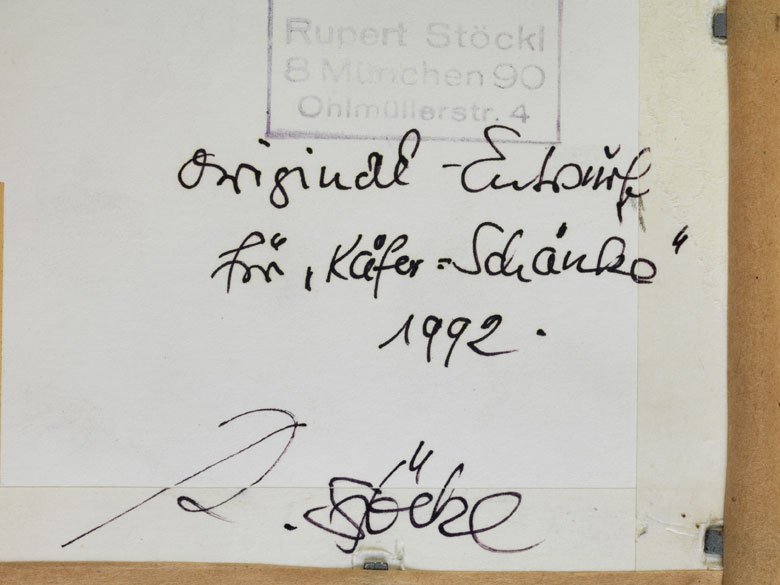 Rupert Stöckl
8 München 90
Ohlmüllerstr. 4
Original-Entwurf
für „Käfer-Schänke“
1992.
R. Stöckl